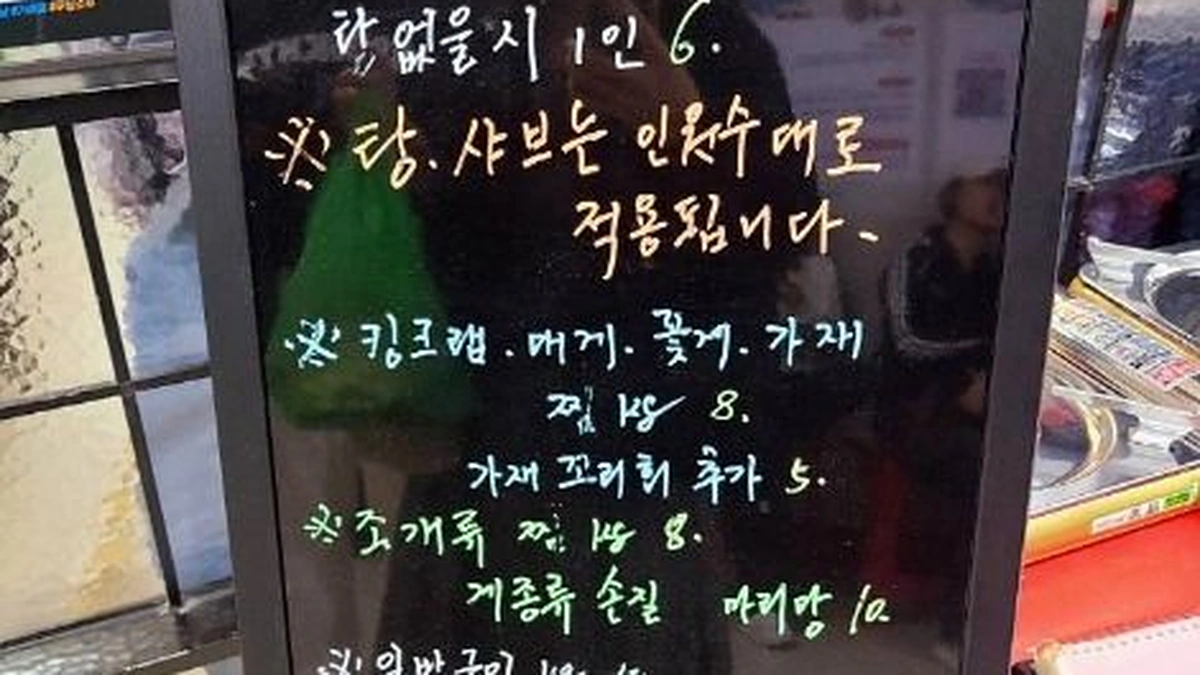 탕 없을시 1인 6.
※ 탕. 샤브는 인원수대로
적용됩니다~
※ 킹크랩. 대게. 꽃게. 가재
찜 kg 8.
가재 꼬리회 추가 5.
※ 조개류 찜 kg 8.
게종류 손질 마리당 10.
※ 일반구이